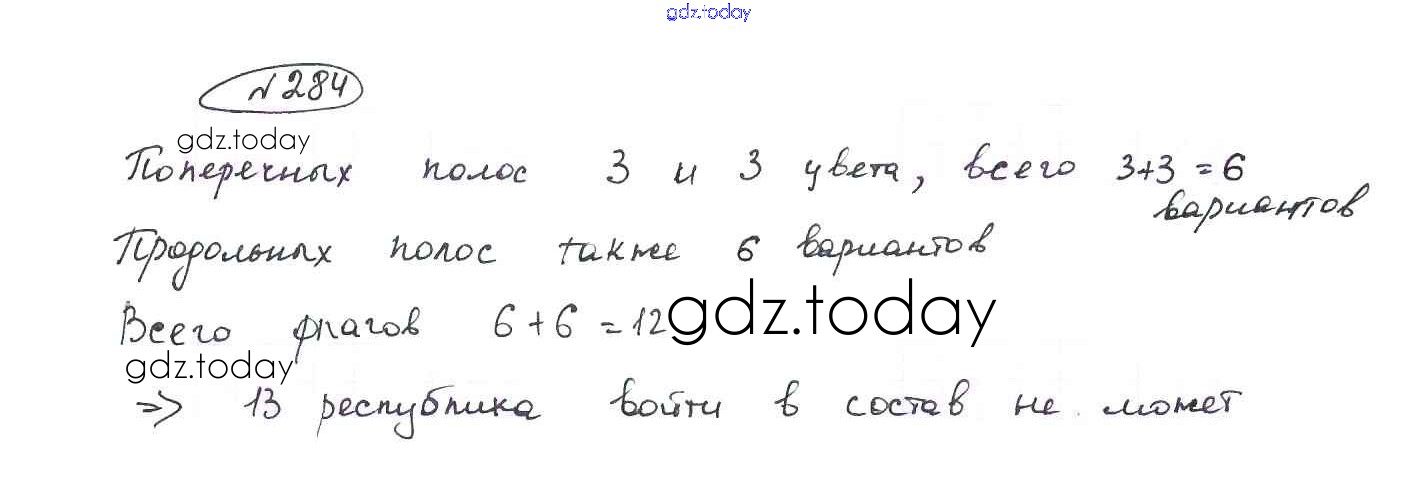 gdz.today
№ 284
gdz.today
Поперечных полос 3 и 3 цвета, всего 3+3 = 6
вариантов
Продольных полос также 6 вариантов
Всего флагов 6 + 6 = 12 gdz.today
gdz.today
=> 13 республика войти в состав не может